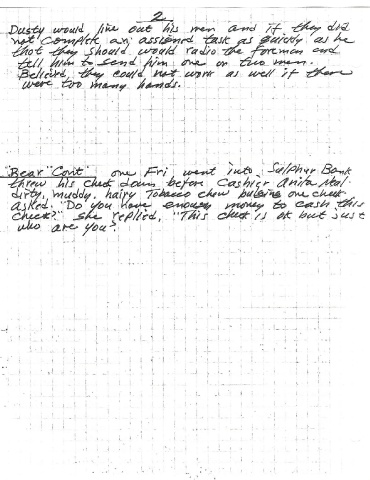 2
Dusty would line out his men and if they did
not complete an assigned task as quickly as he
thot they should would radio the foreman and
tell him to send him one or two men.
Believed, they could not work as well if there
were too many hands.
"Bear" "Cont" one Fri went into Sulphur Bank
threw his check down before Cashier Anita Mal
dirty, muddy, hairy Tobacco chew bulging one cheek
asked. "Do you have enough money to cash this
check?" She replied, "This check is ok but just
who are you?